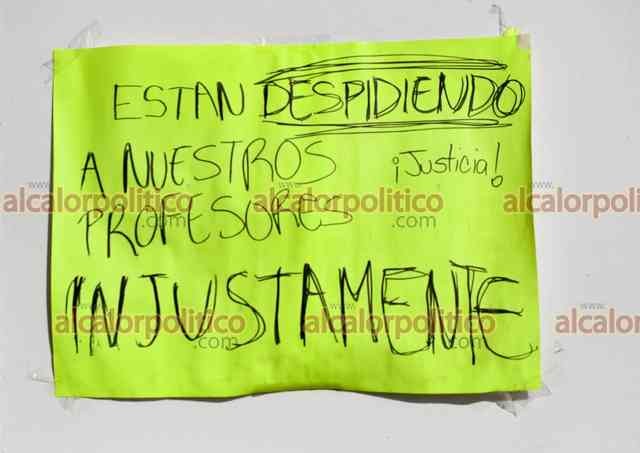 ESTAN DESPIDIENDO
A NUESTROS ¡Justicia!
PROFESORES
INJUSTAMENTE
www.
alcalorpolitico
.com
www.
alcalorpolitico
.com
www.
alcalorpolitico
www.
alcalorpolitico
.com
www.
alcalorpolitico
.com
www.
alcalorpolitico